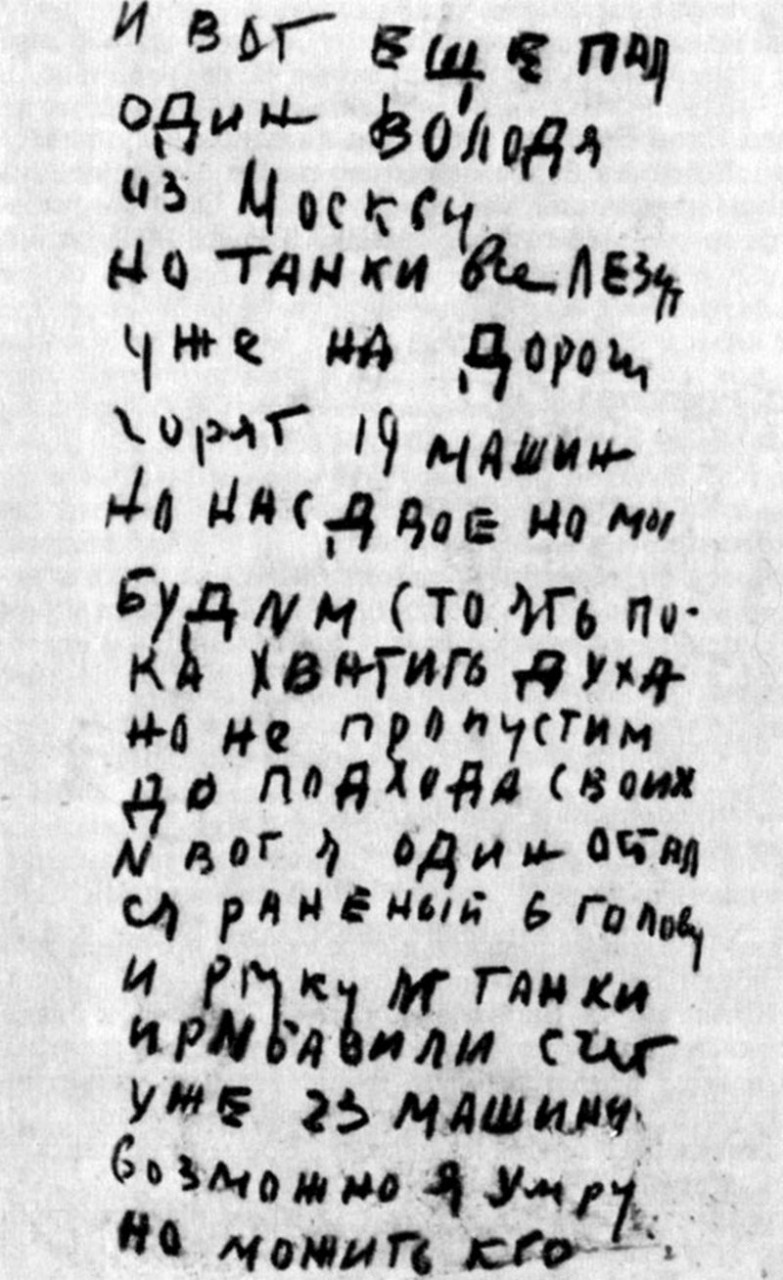 И ВОТ ЕЩЕ ПАЛ
ОДИН ВОЛОДЯ
ИЗ МОСКВЫ
НО ТАНКИ все ЛЕЗУТ
уже НА ДОРОГИ
горят 19 МАШИН
НО НАС ДВОЕ НО МЫ
БУДИМ СТОЯТЬ ПО-
КА ХВАТИТЬ ДУХА
НО не ПРОПУСТИМ
ДО ПОДХОДА СВОИХ
И ВОТ Я ОДИН ОСТАЛ
СЯ РАНЕНЫЙ в ГОЛОВУ
И РУКУ И ТАНКИ
ПРИБАВИЛИ СЧЕТ
УЖЕ 23 МАШИНЫ
ВОЗМОЖНО Я УМРУ
НО МОЖИТЬ КТО